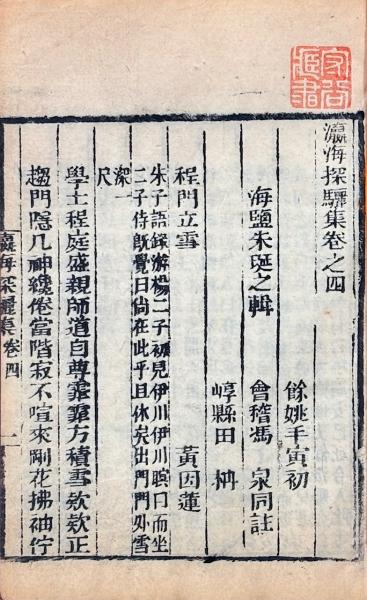 瀛海探驪集卷之四
餘姚毛寅初
海鹽朱埏之輯
會稽馮泉同註
嵊縣田枬
程門立雪
黃因蓮
朱子語錄游楊二子初見伊川伊川瞑目而坐
二子侍旣覺曰尙在此乎且休矣出門門外雪
深一
尺
學士程庭盛親師道自尊霏霏方積雪欸欸正
趨門隱几神纔倦當階寂不喧來剛花拂袖佇
瀛海探驪集 卷四 一